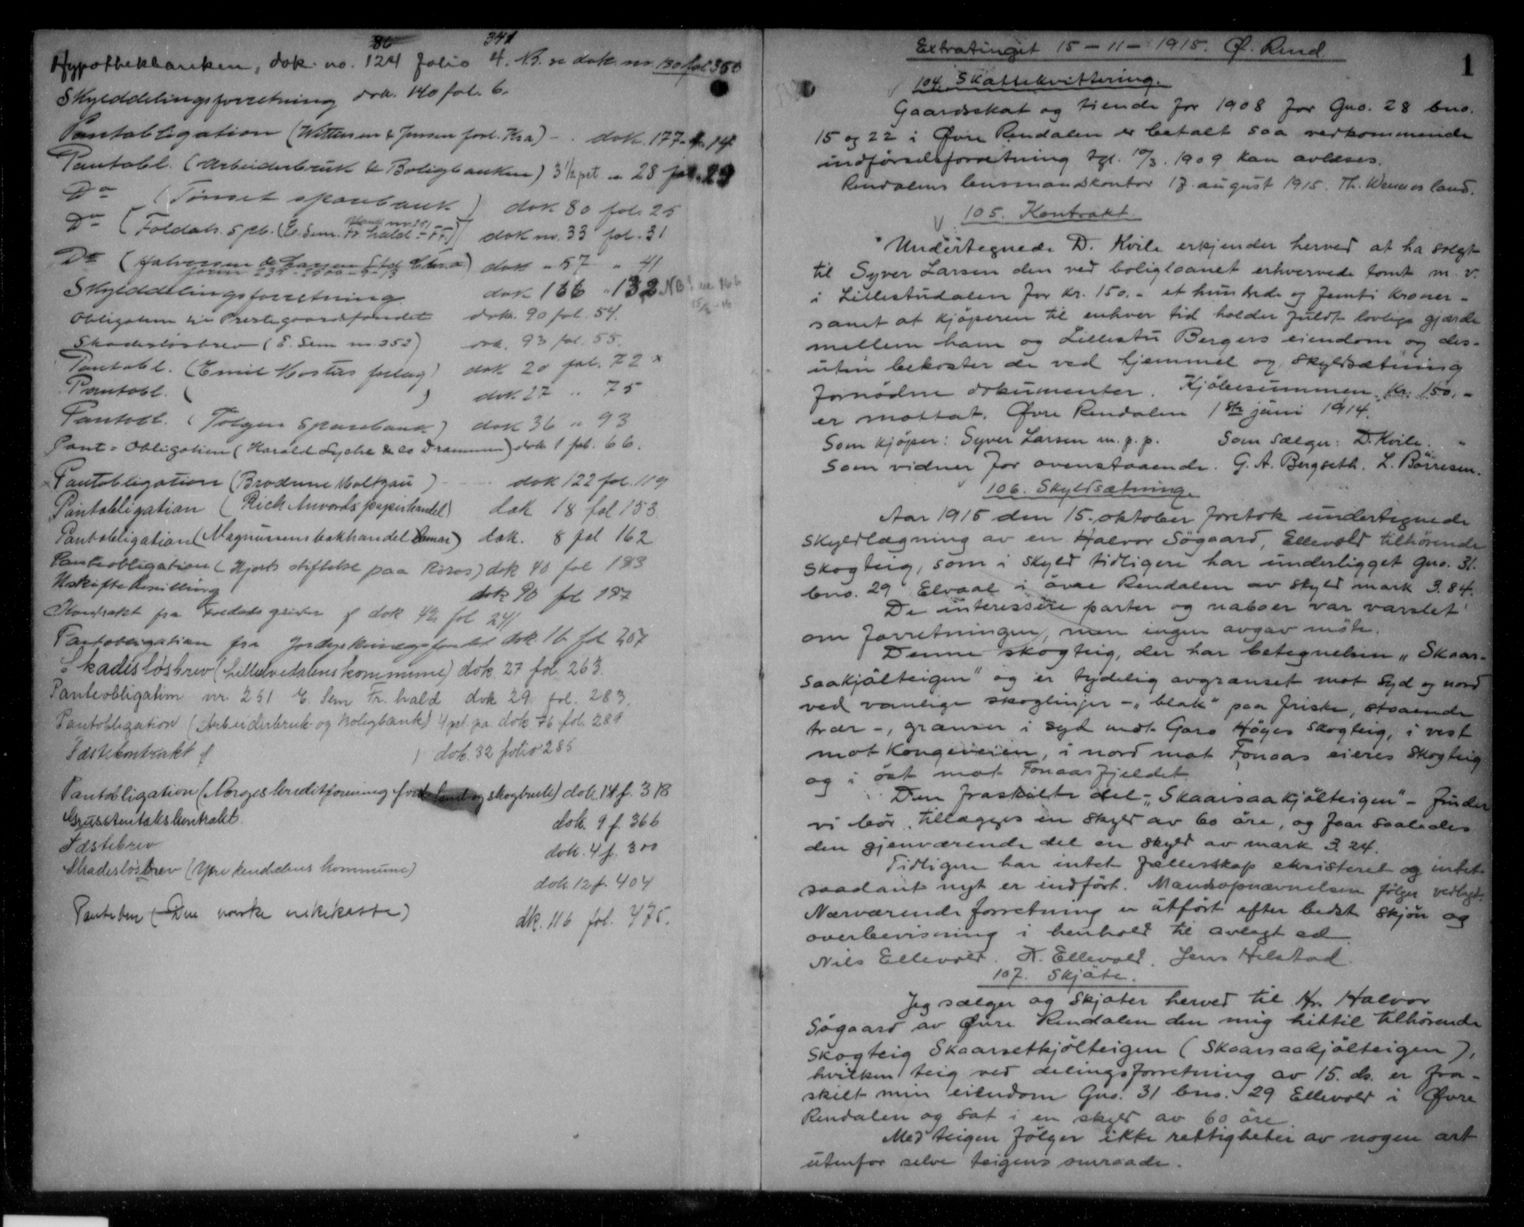 86 341
Hypothekbanken, dok. no. 124 folio 4. NB. se dok. nr. 130 fol 350
Skylddelingsforretning dok. 140 fol. 6.
Pantobligation (Wittusen & Jensen forl. Kra) - dok. 177 - 14
Pantobl. (Arbeiderbruk & Boligbanken) 3½ pct. " 28 fol. 29
Do (Tønset sparebank) dok 80 fol. 25
Do (Foldals Spb. (E. Sem. Fr.hald - FF.) dok nr. 33 fol. 31
Do (Halvorsen & Larsen Ltd. Chra) dok " 57 " 41
Skylddelingsforretning dok 166 " 132 NB!
Obligation til Prestegaardsfondet dok. 90 fol. 54.
Skadesløsbrev (E. Sem nr 253) dok. 93 fol. 55.
Pantobl. (Emil Mostas forlag) dok 20 fol. 72 x
Pantobl. ( ) dok 27 " 75
Pantobl. (Tolgen Sparebank) dok 36 " 93
Pant-Obligation (Harald Lyche & Co Drammen) dok 1 fol. 66.
Pantobligation (Brødrene Moltzau) - dok 122 fol. 119
Pantobligation (Rich Anvords papirhandel) dok 18 fol 153
Pantobligation (Magnussens bokhandel Hamar) dok. 8 fol 162
Panteobligation (Hjorts stiftelse paa Røros) dok 40 fol 183
dok 90 fol 187
Kontrakt fra dok 42 fol 241
Pantobligation fra dok 16 fol 257
Skadesløsbrev (Lilleelvedalens kommune) dok. 27 fol. 263.
Panteobligation nr 251 E. Sem Fr.hald dok 29 fol. 283.
Pantobligation (Arbeiderbruk og Boligbank) 4 pct. pa. dok 76 fol. 289
Festekontrakt ( ) dok. 32 folio 285
Pantobligation (Norges kreditforening for land og skogbruk) dok. 14 f. 318
Grustaktskontrakt dok. 9 f. 366
Festebrev dok. 4 f. 300
Skadesløsbrev (Øvre Rendalens kommune) dok 12 f. 404
Pantebrev (Den norske enkekasse) dk. 116 fol. 475.
Extratinget 15-11-1915. Ø. Rend 1
104. Skattekvittering.
Gaardsskat og tiende for 1908 for Gno. 28 bno.
15 og 22 i Øvre Rendalen er betalt saa vedkommende
indførselsforretning tgl. 10/3. 1909 kan avlæses.
Rendalens lensmandskontor 17. august 1915. Th. Wennesland.
105. Kontrakt
Undertegnede D. Kvile erkjender herved at ha solgt
til Syver Larsen den ved boliglaanet erhvervede tomt m. v.
i Lillestudalen for kr. 150.- et hundrede og femti kroner -
samt at kjøperen til enhver tid holder fuldt lovlige gjærde
mellem ham og Lillestu Bergers eiendom og des-
uten bekoster de ved hjemmel og skyldsætning
fornødne dokumenter. Kjøbesummen kr. 150.-
er mottat. Øvre Rendalen 1ste juni 1914.
Som kjøper: Syver Larsen m. p. p. Som sælger: D. Kvile.
Som vidner for ovenstaaende. G. A. Bergseth. L. Børresen.
106. Skyldsætning.
Aar 1915 den 15. oktober foretok undertegnede
skyldlægning av en Halvor Søgaard, Ellevold tilhørende
skogteig, som i skyld tidligere har underligget gno. 31.
bno. 29 Elvaal i øvre Rendalen av skyld mark 3.84.
De interessere parter og naboer var varslet
om forretningen, men ingen avgav møte.
Denne skogteig, der har betegnelsen „Skaar-
saakjølteigen" og er tydelig avgrænset mot syd og nord
ved vanlige skoglinjer - „blek" paa friske, staaende
trær -, grænser i syd mot Gars Høyes skogteig, i vest
mot Kongeveien, i nord mot Fonaas eieres skogteig
og i øst mot Fonaasfjeldet.
Den fraskilte del - „Skaarsaakjølteigen" - finder
vi bør tillægges en skyld av 60 øre, og faar saaledes
den gjenværende del en skyld av mark 3.24.
Tidligere har intet fællesskap eksisteret og intet
saadant nyt er indført. Mandsopnævnelsen følger vedlagt.
Nærværende forretning er utført efter bedste skjøn og
overbevisning i henhold til avlagt ed.
Nils Ellevold. H. Ellevold. Jens Helstad.
107. Skjøte.
Jeg sælger og skjøter herved til Hr. Halvor
Søgaard av Øvre Rendalen den mig hittil tilhørende
skogteig Skaarsetkjølteigen (Skaarsaakjølteigen),
hvilken teig ved delingsforretning av 15. ds. er fra-
skilt min eiendom Gno. 31 bno. 29 Ellevold i Øvre
Rendalen og sat i en skyld av 60 øre.
Med teigen følger ikke rettigheter av nogen art
utenfor selve teigens omraade.